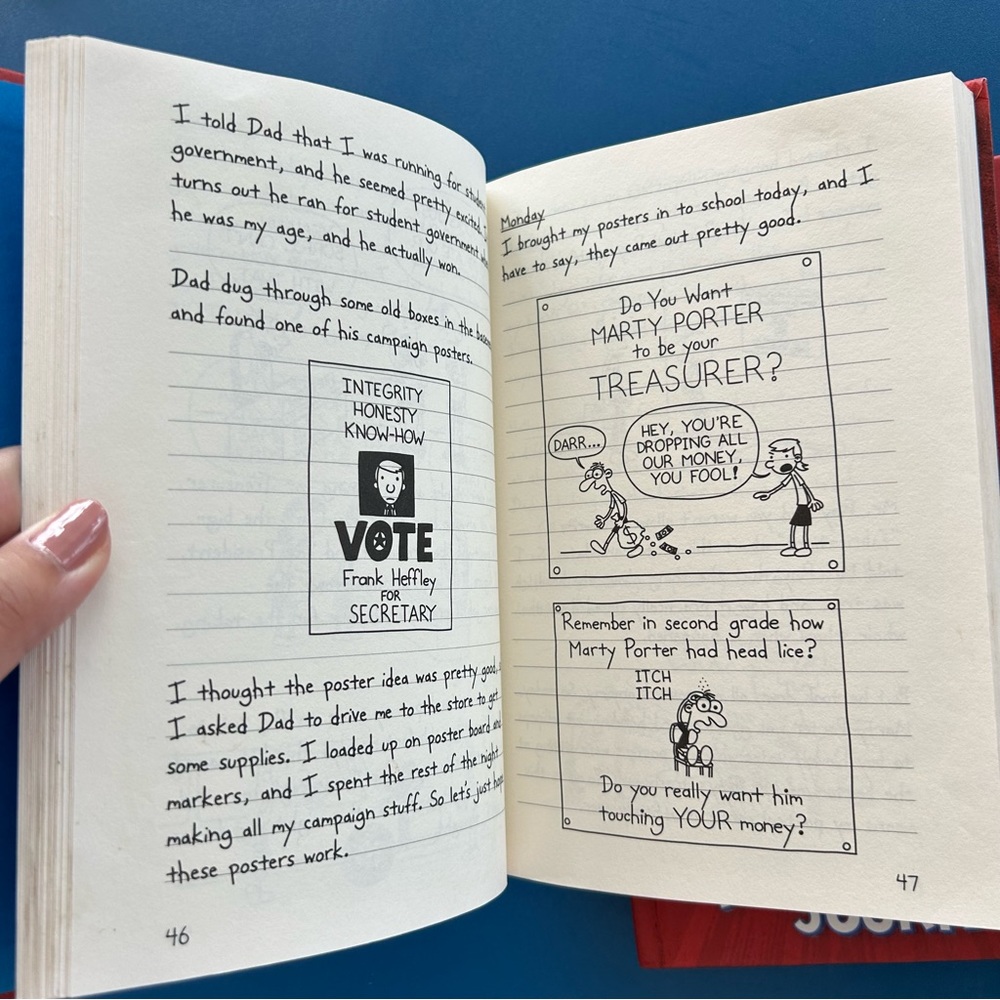 I told Dad that I was running for
government, and he seemed pretty excited.
turns out he ran for student government
he was my age, and he actually won.
Dad dug through some old boxes in the
and found one of his campaign posters.
INTEGRITY
HONESTY
KNOW-HOW
VOTE
Frank Heffley
FOR
SECRETARY
I thought the poster idea was pretty good,
I asked Dad to drive me to the store to get
some supplies. I loaded up on poster board
markers, and I spent the rest of the night
making all my campaign stuff. So let's just
these posters work.
46
Monday
I brought my posters in to school today, and I
have to say, they came out pretty good.
Do You Want
MARTY PORTER
to be your
TREASURER?
DARR...
HEY, YOU'RE
DROPPING ALL
OUR MONEY,
YOU FOOL!
$
Remember in second grade how
Marty Porter had head lice?
ITCH
ITCH
Do you really want him
touching YOUR money?
47